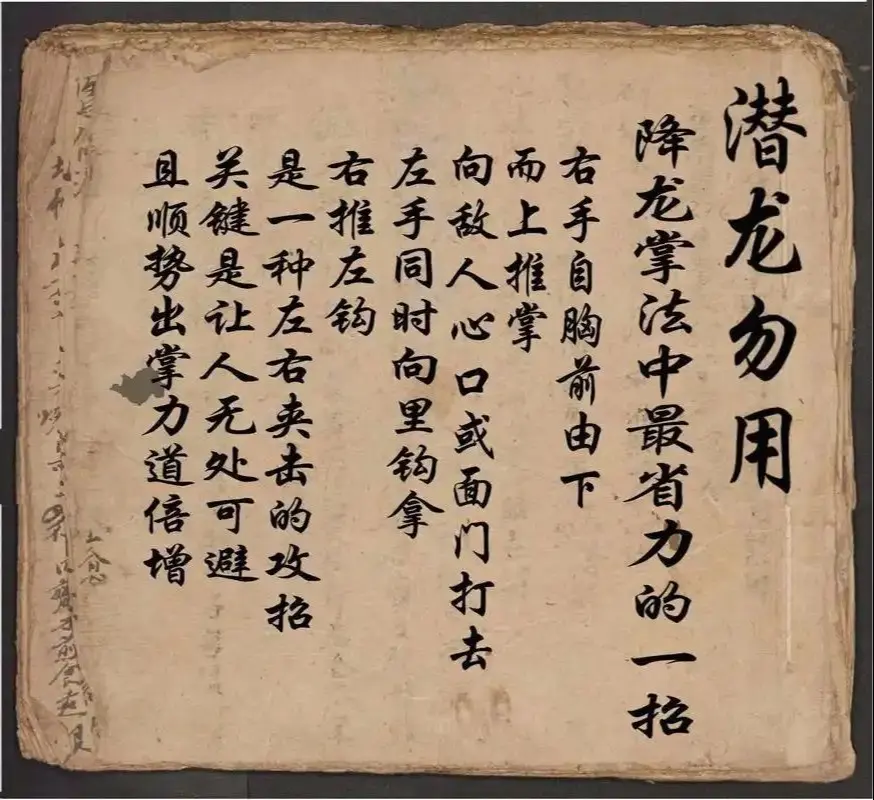 潜龙勿用
降龙掌法中最省力的一招
右手自胸前由下
而上推掌
向敌人心口或面门打去
左手同时向里钩拿
右推左钩
是一种左右夹击的攻招
关键是让人无处可避
且顺势出掌力道倍增